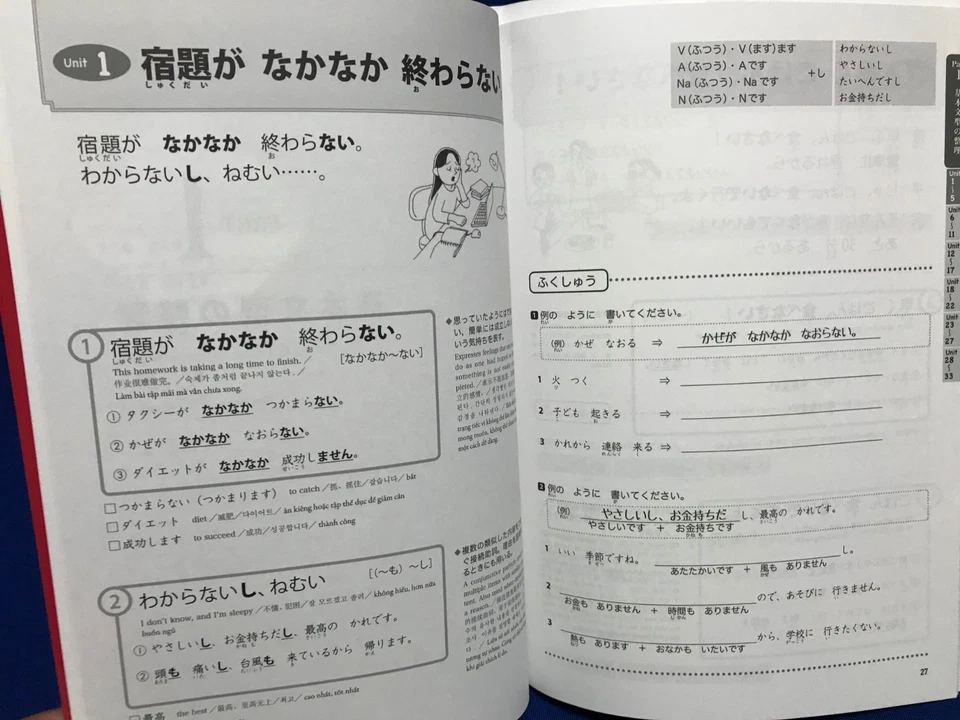 Unit 1 宿題が なかなか 終わらない
しゅくだい お
宿題が なかなか 終わらない。
しゅくだい お
わからないし、ねむい……。
1 宿題が なかなか 終わらない。
しゅくだい お
This homework is taking a long time to finish. ／ [なかなか〜ない]
作业很难做完。／숙제가 좀처럼 끝나지 않는다. ／
Làm bài tập mãi mà vẫn chưa xong.
① タクシーが なかなか つかまらない。
② かぜが なかなか なおらない。
③ ダイエットが なかなか 成功しません。
せいこう
□つかまらない（つかまります） to catch／抓、抓住／잡습니다／bắt
□ダイエット diet／减肥／다이어트／ăn kiêng hoặc tập thể dục để giảm cân
□成功します to succeed／成功／성공합니다／thành công
せいこう
2 わからないし、ねむい [（〜も）〜し]
I don't know, and I'm sleepy／不懂，犯困／잘 모르겠고 졸려／không hiểu, hơn nữa
buồn ngủ
① やさしいし、お金持ちだし、最高の かれです。
かねも さいこう
② 頭も 痛いし、台風も 来ているから 帰ります。
あたま いた たいふう き かえ
□最高 the best／最高，至高无上／최고／cao nhất, tốt nhất
◆思っていたようには
い、簡単には成立し
いう気持ちを表す。
Expresses feelings that
do as one had hoped
something is not
pleted.
một cách dễ dàng.
◆複数の類似した
ぐ接続助詞。理由を
るときにも用いる。
A conjunctive
multiple items with
tent. Also used
a reason.
V（ふつう）・V（ます）ます
A（ふつう）・Aです
Na（ふつう）・Naです
N（ふつう）・Nです
+し
わからないし
やさしいし
たいへんですし
お金持ちだし
ふくしゅう
1 例の ように 書いてください。
れい か
（例） かぜ なおる ⇒ かぜが なかなか なおらない。
れい
1 火 つく ⇒
ひ
2 子ども 起きる ⇒
こ お
3 かれから 連絡 来る ⇒
れんらく く
2 例の ように 書いてください。
れい か
（例） やさしいし、お金持ちだ し、最高の かれです。
れい さいこう
やさしいです + お金持ちです
かねも
1 いい 季節ですね。 し。
きせつ
あたたかいです + 風も ありません
かぜ
2 ので、あそびに 行きません。
い
お金も ありません + 時間も ありません
かね じかん
3 から、学校に 行きたくない。
がっこう い
熱も あります + おなかも いたいです
ねつ
27
基本文型の整理
Unit
1〜5
Unit
6〜11
Unit
12〜17
Unit
18〜22
Unit
23〜27
Unit
28〜33